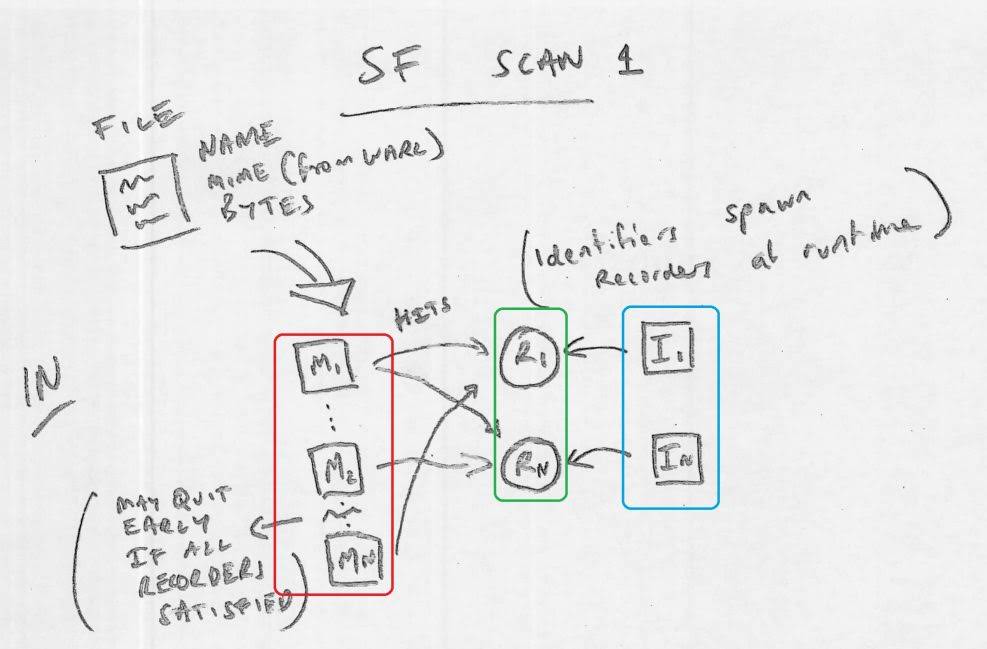 SF SCAN 1
FILE
NAME
MIME (from WARC)
BYTES
(Identifiers spawn
Recorders at runtime)
HITS
IN
M1
R1
I1
M2
RN
IN
MN
(MAY QUIT
EARLY
IF ALL
RECORDERS
SATISFIED)